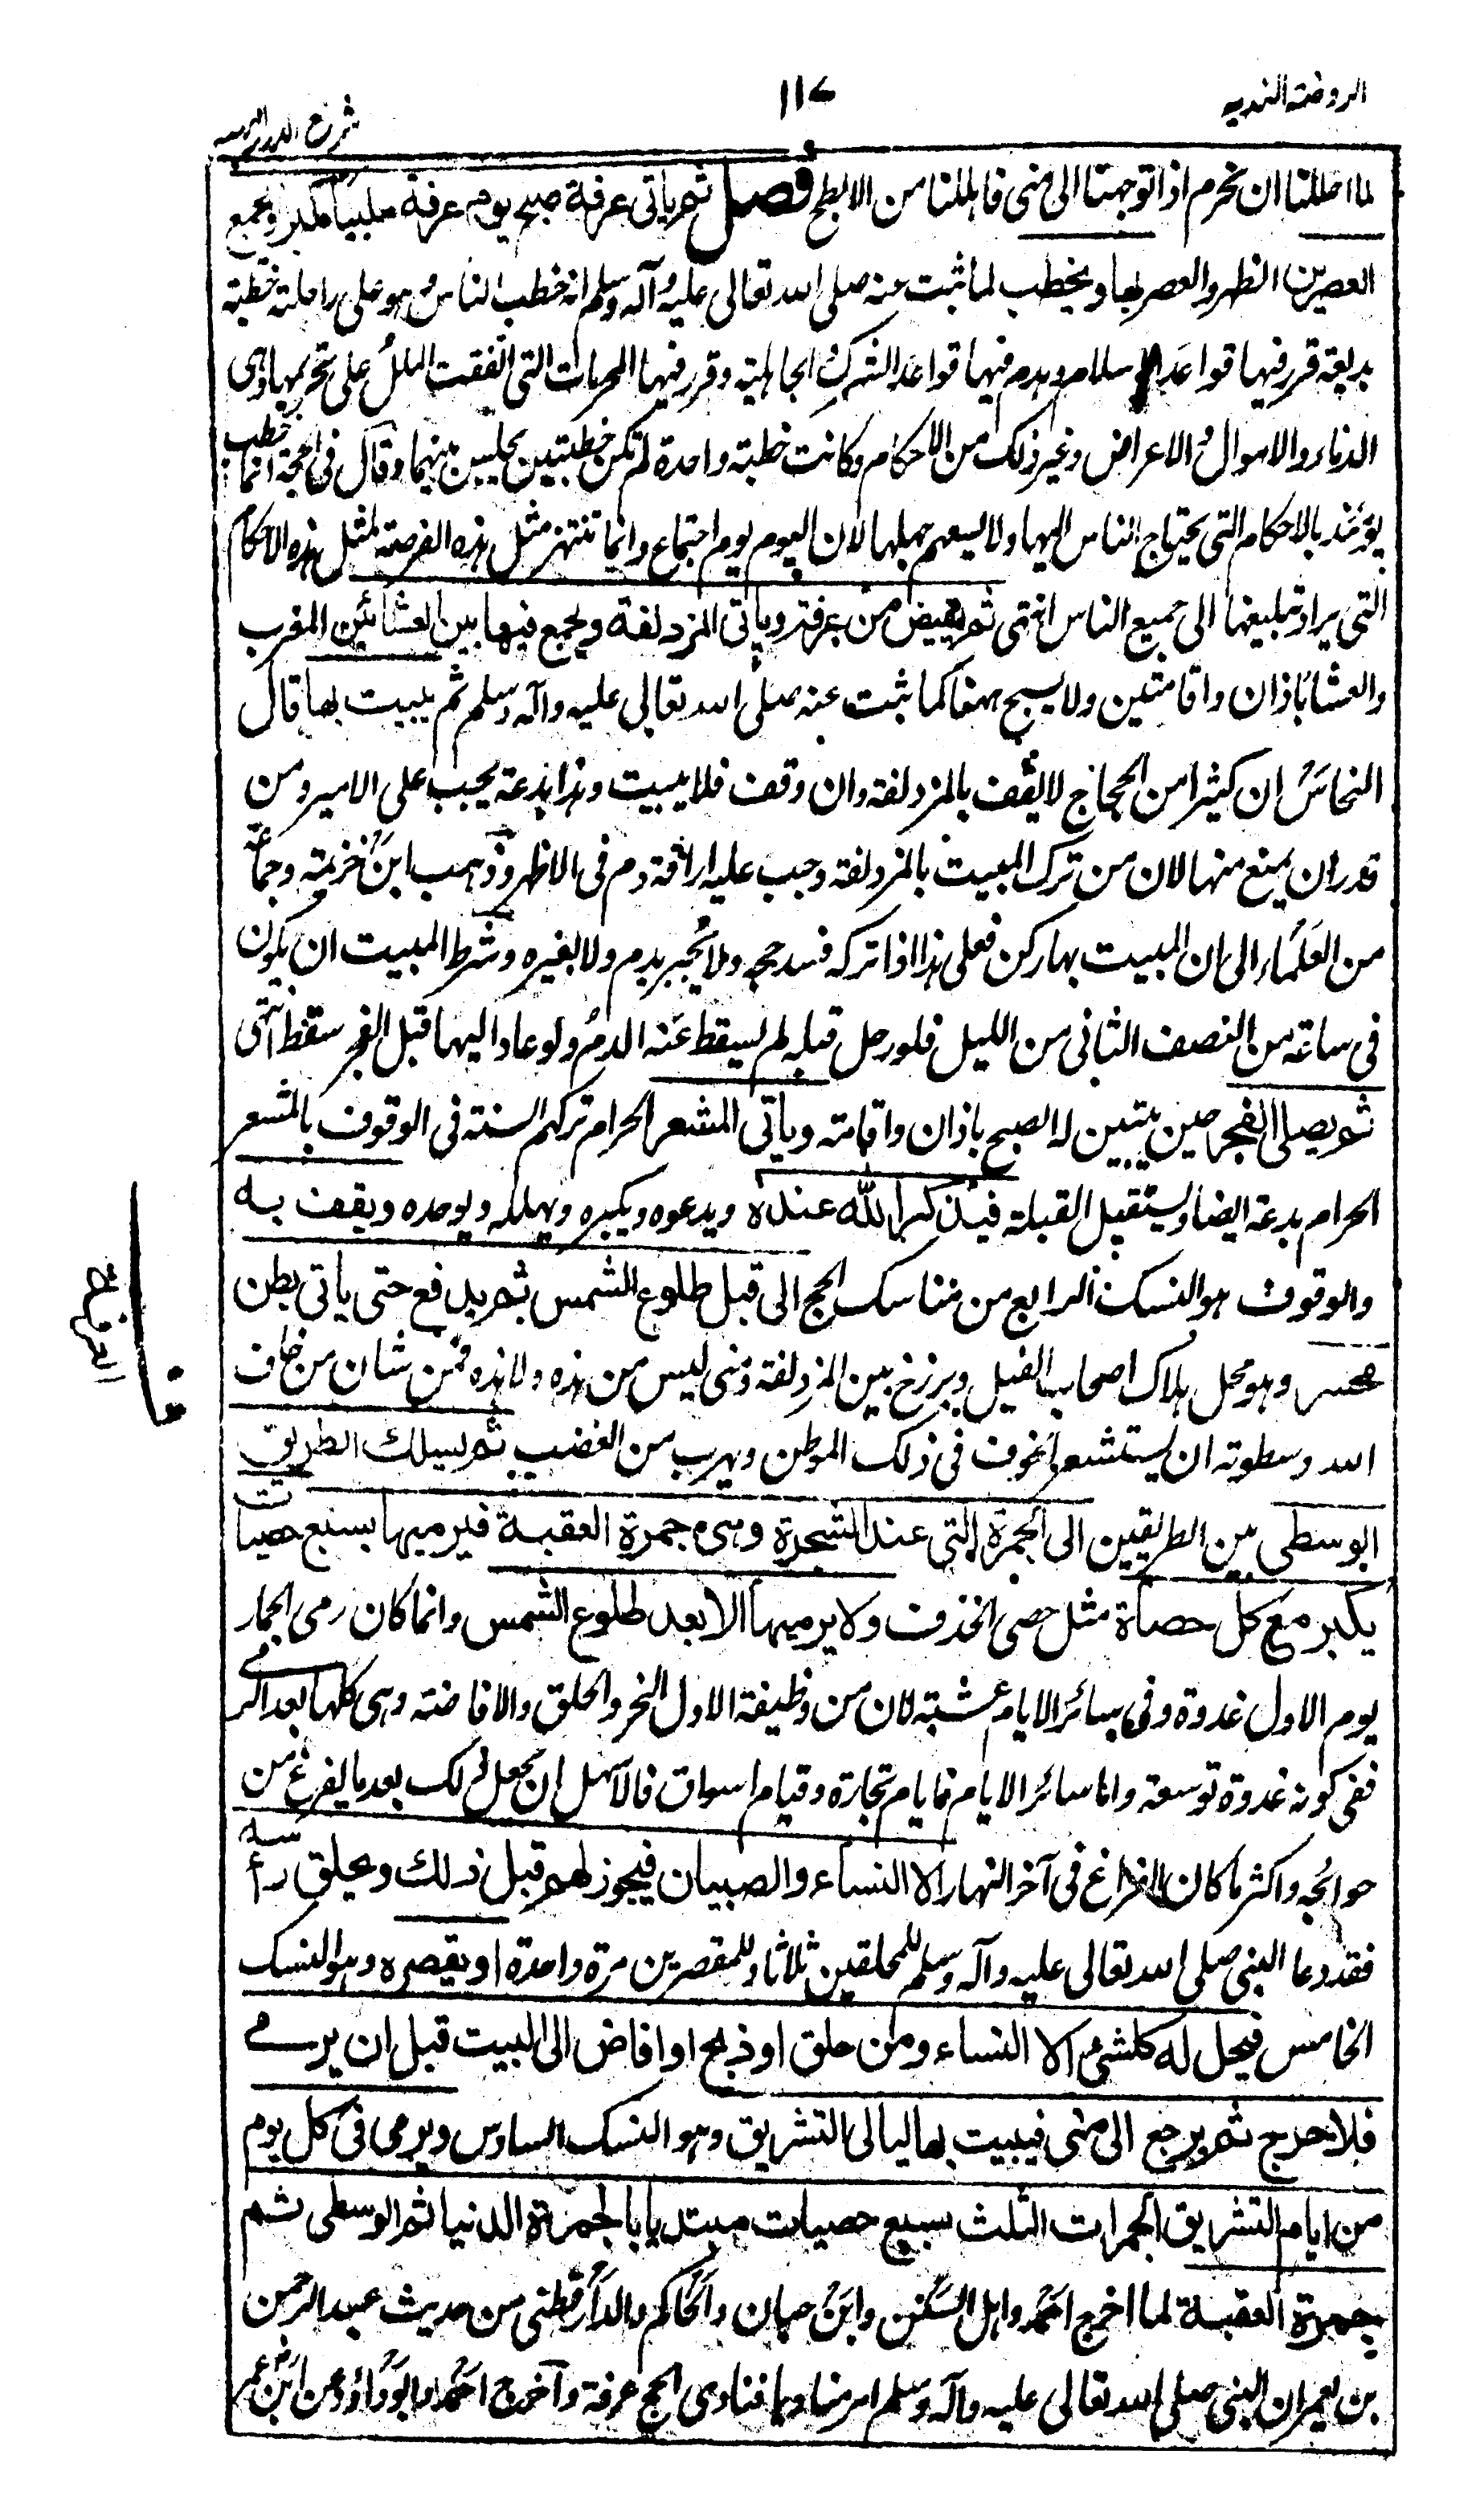 الروضة الندية
١١٧
شرح الدرر البهية
لما احللنا ان نحرم اذا توجهنا الى منى فاهللنا من الابطح فصل ثم ياتى عرفة صبح يوم عرفة ملبيا مكبرا ويجمع
العصرين الظهر والعصر بها ويخطب لما ثبت عنه صلى الله تعالى عليه وآله وسلم انه خطب الناس وهو على راحلته خطبة
بديعة قرر فيها قواعد الاسلام وهدم فيها قواعد الشرك والجاهلية وقرر فيها المحرمات التى اتفقت الملل على تحريمها وهى
الدماء والاموال والاعراض وغير ذلك من الاحكام وكانت خطبة واحدة لم تكن خطبتين يجلس بينهما وقال فى الحجة انما خطب
يومئذ بالاحكام التى يحتاج الناس اليها ولا يسعهم جهلها لان اليوم يوم اجتماع وانما تنتهز مثل هذه الفرصة لمثل هذه الاحكام
التى يراد تبليغها الى جميع الناس انتهى ثم يفيض من عرفة وياتى المزدلفة ويجمع فيها بين العشائين المغرب
والعشا باذان واقامتين ولا يسبح بينهما كما ثبت عنه صلى الله تعالى عليه وآله وسلم ثم يبيت بها قال
النحاس ان كثيرا من الحجاج لا يقف بالمزدلفة وان وقف فلا يبيت وهذا بدعة يجب على الامير ومن
قدر ان يمنع منها لان من ترك المبيت بالمزدلفة وجب عليه اراقة دم فى الاظهر وذهب ابن خزيمة وجماعة
من العلماء الى ان المبيت بها ركن فعلى هذا اذا تركه فسد حجه ولا يجبر بدم ولا بغيره وشرط المبيت ان يكون
فى ساعة من النصف الثانى من الليل فلو رحل قبله لم يسقط عنه الدم ولو عاد اليها قبل الفجر سقط انتهى
ثم يصلى الفجر حين يتبين له الصبح باذان واقامة وياتى المشعر الحرام تركهم السنة فى الوقوف بالمشعر
الحرام بدعة ايضا ويستقبل القبلة فيذكر الله عنده ويدعوه ويكبره ويهلله ويوحده ويقف به
والوقوف هو النسك الرابع من مناسك الحج الى قبل طلوع الشمس ثم يدفع حتى ياتى بطن
محسر وهو محل هلاك اصحاب الفيل وبرزخ بين المزدلفة ومنى ليس من هذه ولا هذه فمن شان من خاف
الله وسطوته ان يستشعر الخوف فى ذلك الموطن ويهرب من الغضب ثم يسلك الطريق
الوسطى بين الطريقين الى الجمرة التى عند الشجرة وهى جمرة العقبة فيرميها بسبع حصيات
يكبر مع كل حصاة مثل حصى الخذف ولا يرميها الا بعد طلوع الشمس وانما كان رمى الجمار
يوم الاول غدوة وفى سائر الايام عشية لان من وظيفة الاول النحر والحلق والافاضة وهى كلها بعد الرمى
ففى كونه غدوة توسعة واما سائر الايام فايام تجارة وقيام اسواق فالاسهل ان يجعل ذلك بعد ما يفرغ من
حوائجه واكثر ما كان الفراغ فى آخر النهار الا النساء والصبيان فيجوز لهم قبل ذلك ويحلق رأسه
فقد دعا النبى صلى الله تعالى عليه وآله وسلم للمحلقين ثلاثا وللمقصرين مرة واحدة او يقصره وهو النسك
الخامس فيحل له كلشئ الا النساء ومن حلق او ذبح او افاض الى البيت قبل ان يرمى
فلا حرج ثم يرجع الى منى فيبيت بها ليالى التشريق وهو النسك السادس ويرمى فى كل يوم
من ايام التشريق الجمرات الثلث بسبع حصيات مبتديا بالجمرة الدنيا ثم الوسطى ثم
جمرة العقبة لما اخرج احمد واهل السنن وابن حبان والحاكم والدارقطنى من حديث عبد الرحمن
بن يعمر ان النبى صلى الله تعالى عليه وآله وسلم امر مناديا فنادى الحج عرفة واخرج احمد وابو داؤد عن ابن عمر